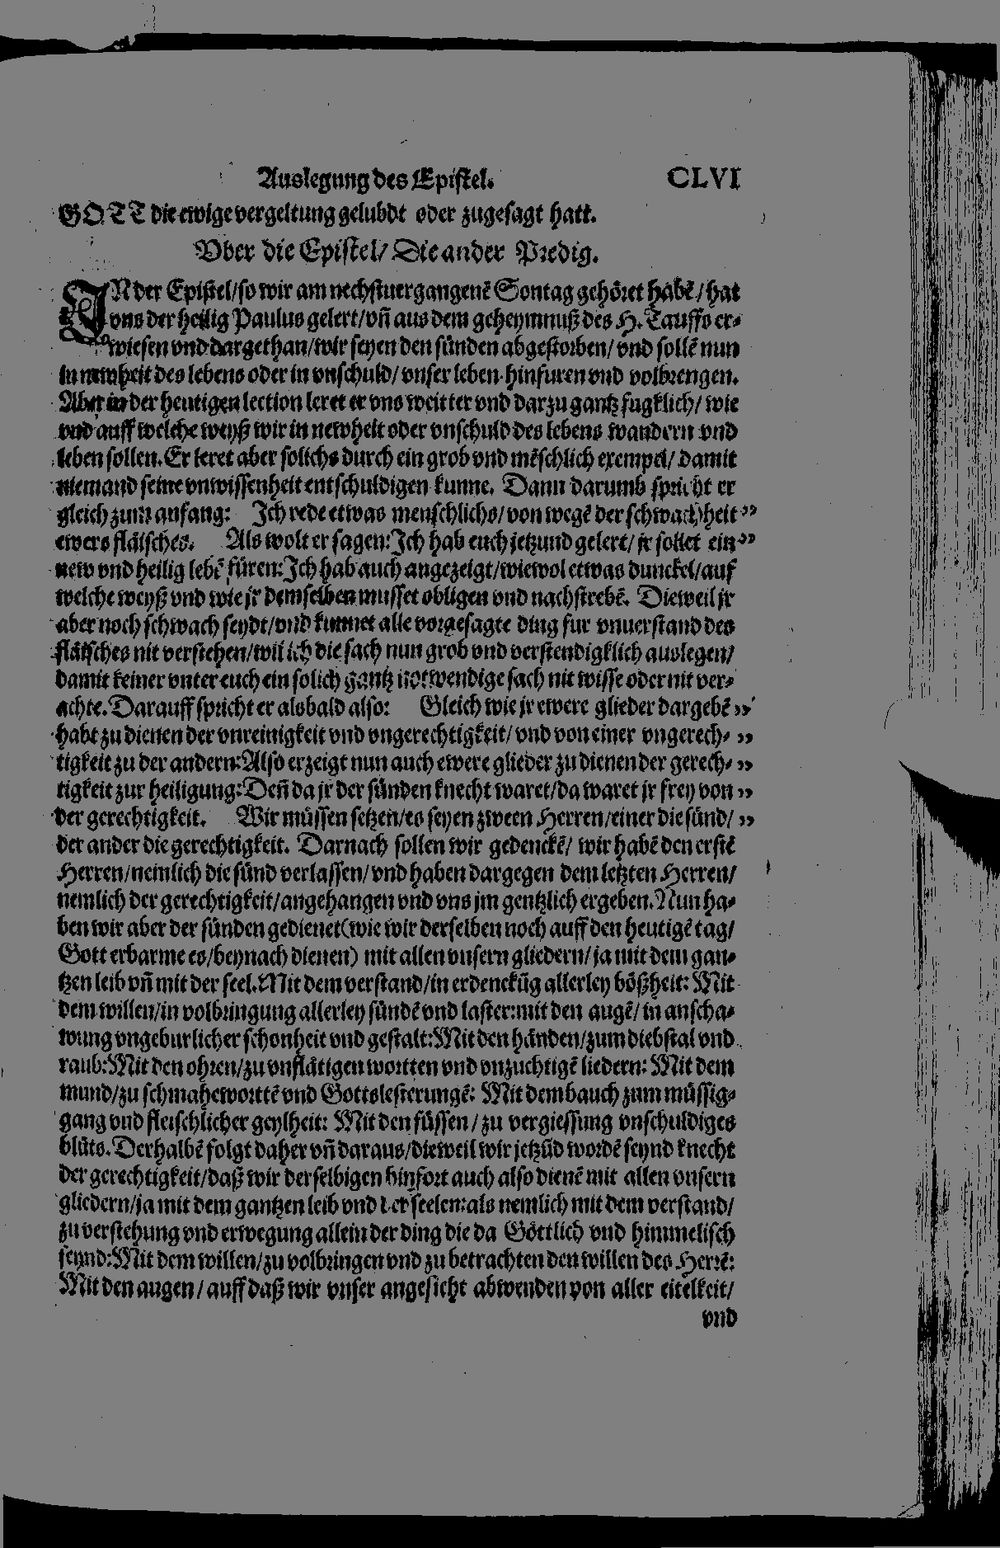 Auslegung des Epistel. CLVI
GOTT die ewige vergeltung gelubdt oder zugesagt hatt.
Vber die Epistel/ Die ander Predig.
IN der Epistel/ so wir am nechstuergangenē Sontag gehöret habē/ hat
vns der heilig Paulus gelert/ vn̄ aus dem geheymnuß des H. Tauffs er-
wiesen vnd dargethan/ wir seyen den sünden abgestorben/ vnd sollē nun
in newheit des lebens oder in vnschuld/ vnser leben hinfuren vnd volbrengen.
Aber in der heutigen lection leret er vns weitter vnd darzu gantz fugklich/ wie
vnd auff welche weyß wir in newheit oder vnschuld des lebens wandern vnd
leben sollen. Er leret aber solichs durch ein grob vnd mēschlich exempel/ damit
niemand seine vnwissenheit entschuldigen kunne. Dann darumb spricht er
gleich zum anfang: Ich rede etwas menschlichs/ von wegē der schwachheit "
ewers fläisches. Als wolt er sagen: Ich hab euch jetzund gelert/ jr sollet ein "
new vnd heilig lebē füren: Ich hab auch angezeigt/ wiewol etwas dunckel/ auf
welche weyß vnd wie jr demselben musset obligen vnd nachstrebē. Dieweil jr
aber noch schwach seydt/ vnd kunnet alle vorgesagte ding fur vnuerstand des
fläisches nit verstehen/ wil ich die sach nun grob vnd verstendigklich auslegen/
damit keiner vnter euch ein solich gantz notwendige sach nit wisse oder nit ver-
achte. Darauff spricht er alsbald also: Gleich wie jr ewere glieder dargebē "
habt zu dienen der vnreinigkeit vnd vngerechtigkeit/ vnd von einer vngerech- "
tigkeit zu der andern: Also erzeigt nun auch ewere glieder zu dienen der gerech- "
tigkeit zur heiligung: Den̄ da jr der sünden knecht waret/ da waret jr frey von "
der gerechtigkeit. Wir müssen setzen/ es seyen zween Herren/ einer die sünd/ "
der ander die gerechtigkeit. Darnach sollen wir gedenckē/ wir habē den erstē
Herren/ nemlich die sünd verlassen/ vnd haben dargegen dem letzten Herren/
nemlich der gerechtigkeit/ angehangen vnd vns jm gentzlich ergeben. Nun ha-
ben wir aber der sünden gedienet (wie wir derselben noch auff den heutigē tag/
Gott erbarme es/ beynach dienen) mit allen vnsern gliedern/ ja mit dem gan-
tzen leib vn̄ mit der seel. Mit dem verstand/ in erdenckūg allerley bößheit: Mit
dem willen/ in volbringung allerley sündē vnd laster: mit den augē/ in anscha-
wung vngeburlicher schonheit vnd gestalt: Mit den händen/ zum diebstal vnd
raub: Mit den ohren/ zu vnflätigen wortten vnd vnzuchtigē liedern: Mit dem
mund/ zu schmahewortē vnd Gottslesterungē: Mit dem bauch zum müssig-
gang vnd fleischlicher geylheit: Mit den füssen/ zu vergiessung vnschuldiges
blüts. Derhalbē folgt daher vn̄ daraus/ dieweil wir jetzūd wordē seynd knecht
der gerechtigkeit/ daß wir derselbigen hinfort auch also dienē mit allen vnsern
gliedern/ ja mit dem gantzen leib vnd der seelen: als nemlich mit dem verstand/
zu verstehung vnd erwegung allein der ding die da Göttlich vnd himmelisch
seynd: Mit dem willen/ zu volbringen vnd zu betrachten den willen des Herrē:
Mit den augen/ auff daß wir vnser angesicht abwenden von aller eitelkeit/
vnd